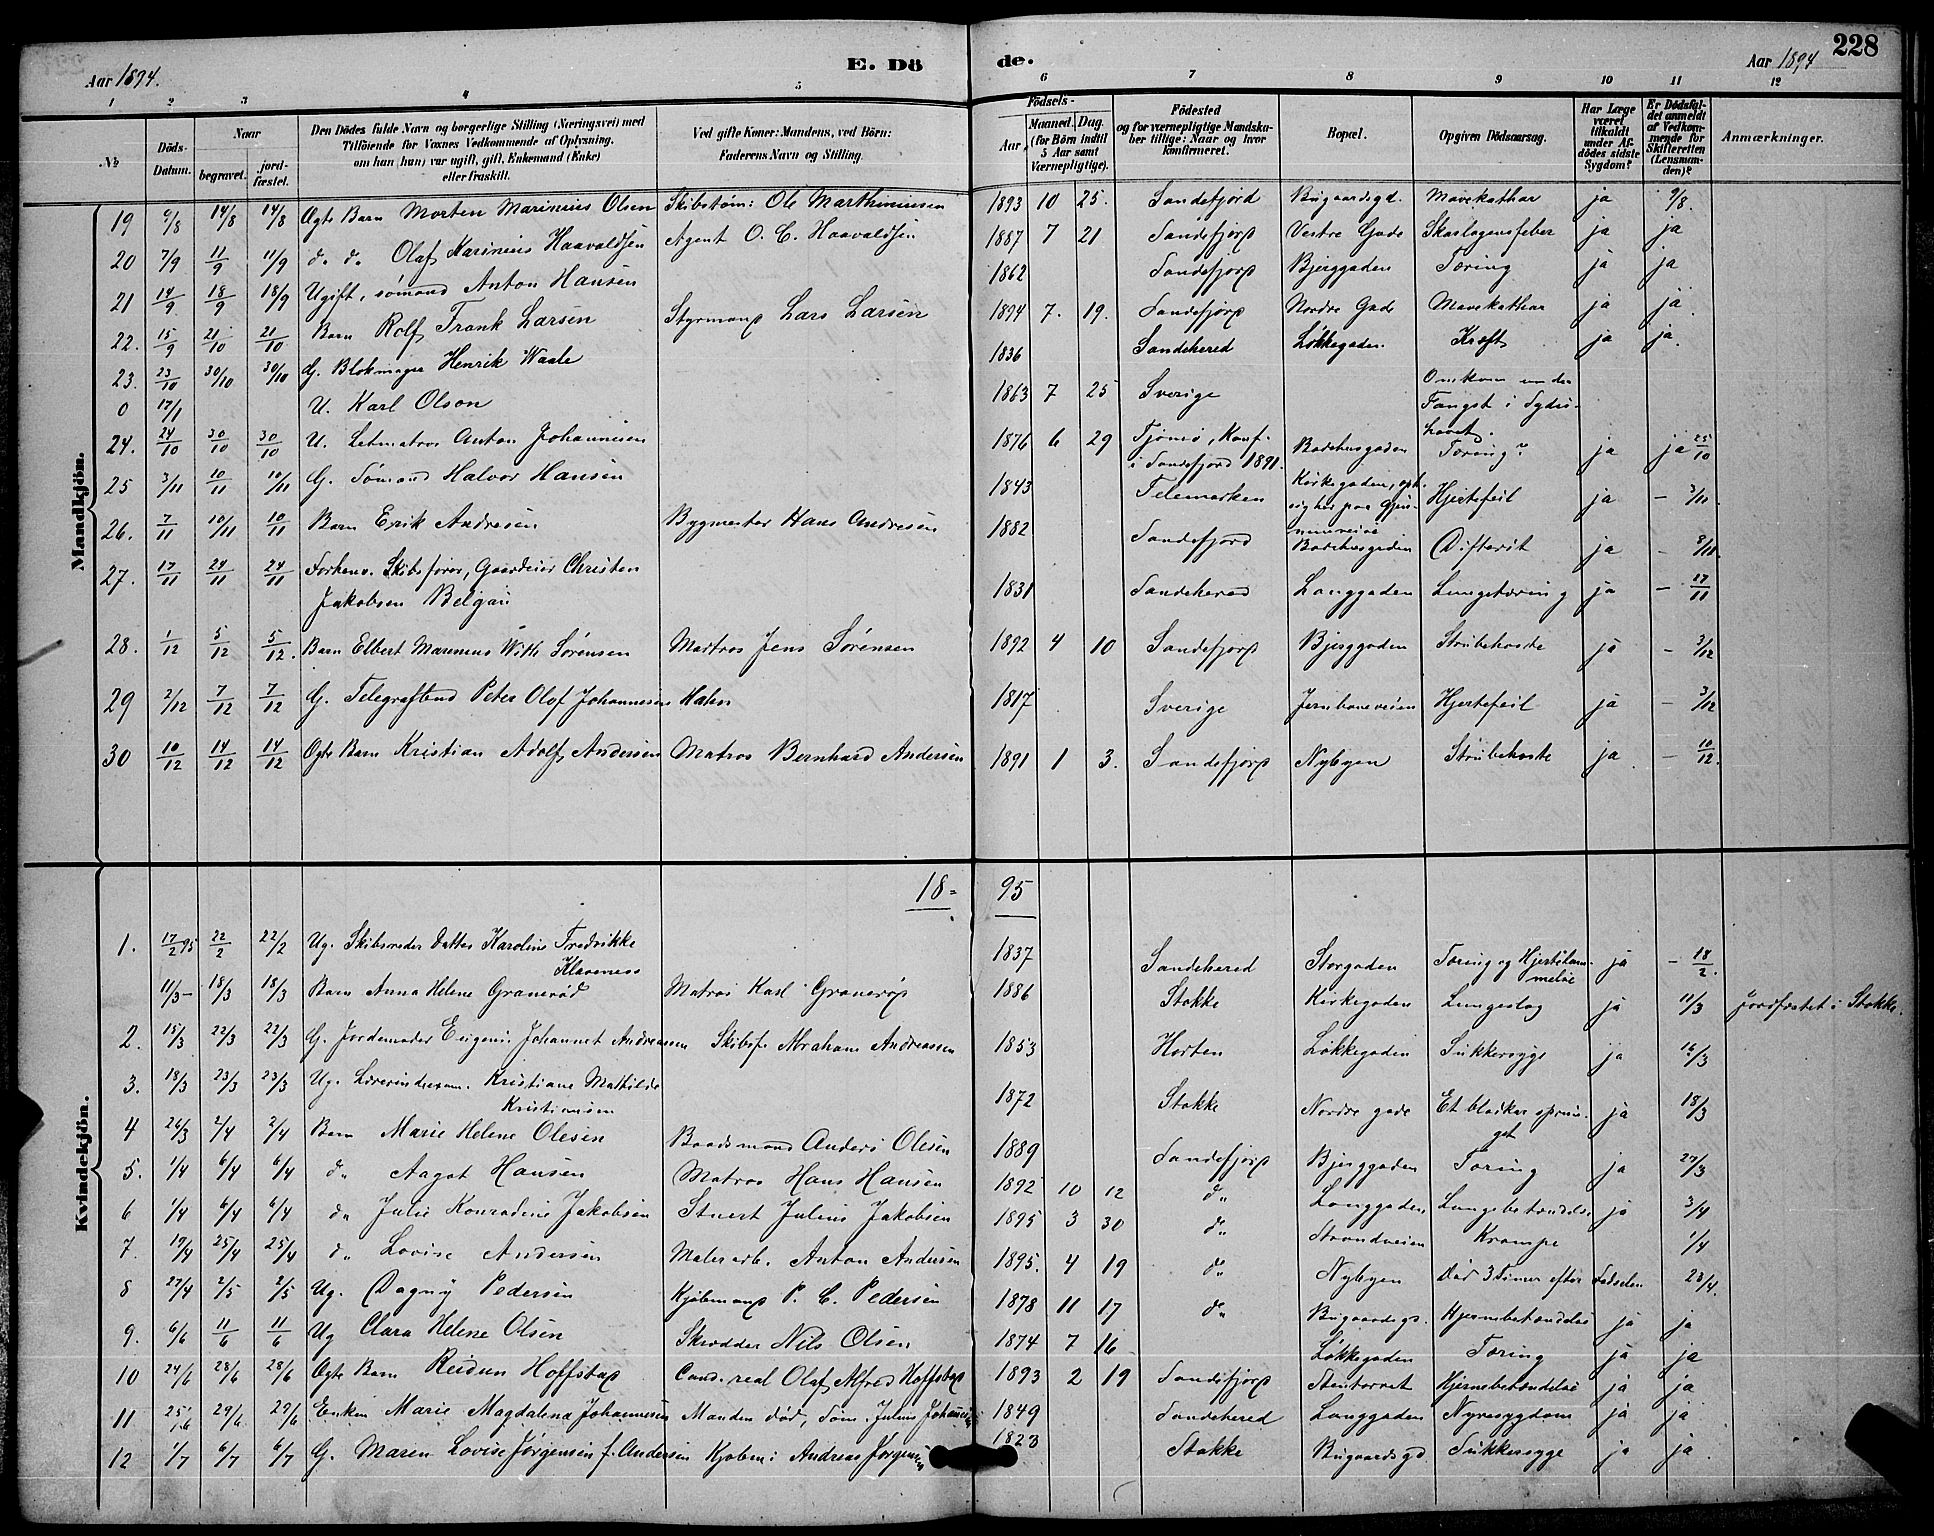 228
Aar 1894.
E. Döde.
Aar 1894
1 2 3 4 5 6 7 8 9 10 11 12
№ Döds-Datum. Naar begravet. jordfæstet. Den Dödes fulde Navn og borgerlige Stilling (Næringsvei) med Tilföiende for Voxnes Vedkommende af Oplysning, om han (hun) var ugift, gift, Enkemand (Enke) eller fraskilt. Ved gifte Koner: Mandens, ved Börn: Faderens Navn og Stilling. Födsels- Aar, Maaned. Dag. (for Börn indtil 5 Aar samt Værnepligtige). Födested og for værnepligtige Mandskaber tillige: Naar og hvor konfirmeret. Bopæl. Opgiven Dödsaarsag. Har Læge været tilkaldt under Afdödes sidste Sygdom? Er Dödsfaldet anmeldt af Vedkommende for Skifteretten (Lensmanden)? Anmærkninger.
Mandkjön.
19 9/8 14/8 14/8 Ægte Barn Morten Marinius Olsen Skibstøm: Ole Marthiniussen 1893 10 25. Sandefjord Bugaardsgd. Mavekathar ja 9/8.
20 7/9 11/9 11/9 d. d. Olaf Marinius Haavaldsen Agent O. C. Haavaldsen 1887 7 21 Sandefjord Vestre Gade Skarlagensfeber ja ja
21 14/9 18/9 18/9 Ugift, sømand Anton Hansen 1862 Sandefjord Bjerggaden Tæring ja ja
22. 15/9 21/10 21/10 Barn Rolf Frank Larsen Styrmand Lars Larsen 1894 7. 19. Sandefjord Nordre Gade Mavekathar ja ja
23. 23/10 30/10 30/10 G. Blokmager Henrik Waale 1836 Sandeherred Løkkegaden. Kræft ja ja.
0 17/1 U. Karl Olson 1863 7 25 Sverige Omkom under Fangst i Sydishavet.
24. 24/10 30/10 30/10 U. Letmatros Anton Johannesen 1876 6 29 Tjømø, Konf. i Sandefjord 1891. Badehusgaden Tæring? ja ja 25/10
25 3/11 10/11 10/11 G. Sømand Halvor Hansen 1843 Telemarken Kirkegaden, Hjertefeil ja - 3/11
26. 7/11 10/11 10/11 Barn Erik Andresen Bygmester Hans Andresen 1882 Sandefjord Badehusgaden Difterit ja - 8/11
27. 17/11 24/11 24/11 Forhenv. Skibsfører, Gaardeier Christen
Jakobsen Belgau 1831 Sandeherred Langgaden Lungetæring ja - 17/11
28. 1/12 5/12 5/12. Barn Elbert Marinius With Sørensen Matros Jens Sørensen 1892 4 10 Sandefjord Bjerggaden Strubehoste ja - 3/12
29 2/12 7/12 7/12 G. Telegrafbud Peter Olof Johannesen Hahn 1817 Sverige Jernbaneveien Hjertefeil ja - 3/12
30 10/12 14/12 14/12 Ægte Barn Kristian Adolf Andersen Matros Bernhard Andersen 1891 1 3. Sandefjord Nybyen Strubehoste ja. - 10/12.
Kvindekjön.
18=95
1. 17/2 95 22/2 22/2 Ug. Skibsreder Datter Karoline Fredrikke
Klaveness 1837 Sandeherred Storgaden Tæring og Hjertelammelse ja - 18/2.
11/3 - 18/3 18/3 Barn Anna Helene Granerød Matros Karl Granerød 1886 Stokke Kirkegaden Lungeslag ja 11/3 jordfæstet i Stokke.
2. 15/3 22/3 22/3 G. Jordemoder Eugenie Johannet Andreassen Skibsf. Abraham Andreassen 1853 Horten Løkkegaden Sukkersyge ja 16/3
3. 18/3 23/3 23/3 Ug. Lærerindeexam. Kristiane Mathilde
Kristiansen 1872 Stokke Nordre gade Et blodkar sprunget ja 18/3
4 26/3 2/4 2/4 Barn Marie Helene Olesen Baadsmand Anders Olesen 1889 Sandefjord Bjerggaden Tæring ja 27/3
5. 1/4 6/4 6/4 do Aagot Hansen Matros Hans Hansen 1892 10 12 do Langgaden Lungebetændelse ja 3/4
6 1/4 6/4 6/4 do Julie Konradine Jakobsen Stuert Julius Jakobsen 1895 3 30 do Strandveien Krampe 1/4
7. 19/4 25/4 25/4 do Lovise Andersen Malerarb. Anton Andersen 1895. 4 19 do Nybyen Død 3 Timer efter Fødselen 23/4.
8 27/4 2/5 2/5 Ug. Dagny Pedersen Kjøbmand P. C. Pedersen 1878 11 17 do Bugaardsg. Hjernebetændelse ja ja
9. 6/6 11/6 11/6 Ug Clara Helene Olsen Skrædder Nils Olsen 1874 7 16 Løkkegaden Tæring ja ja
10 24/6 28/6 28/6 Ægte Barn Reidun Hoffstad Cand. real Olaf Alfred Hoffstad 1893 2 19 Sandefjord Stentorvet Hjernebetændelse ja ja
11 25/6 29/6 29/6 Enken Marie Magdalena Johannesen Manden død, Søm. Julius Johannesen 1849 Sandeherred Langgaden Nyresygdom ja ja
12 1/7 6/7 6/7 G. Maren Lovise Jørgensen f. Andersen Kjøbm: Andreas Jørgensen 1823 Stokke Bugaardsgd Sukkersyge ja ja